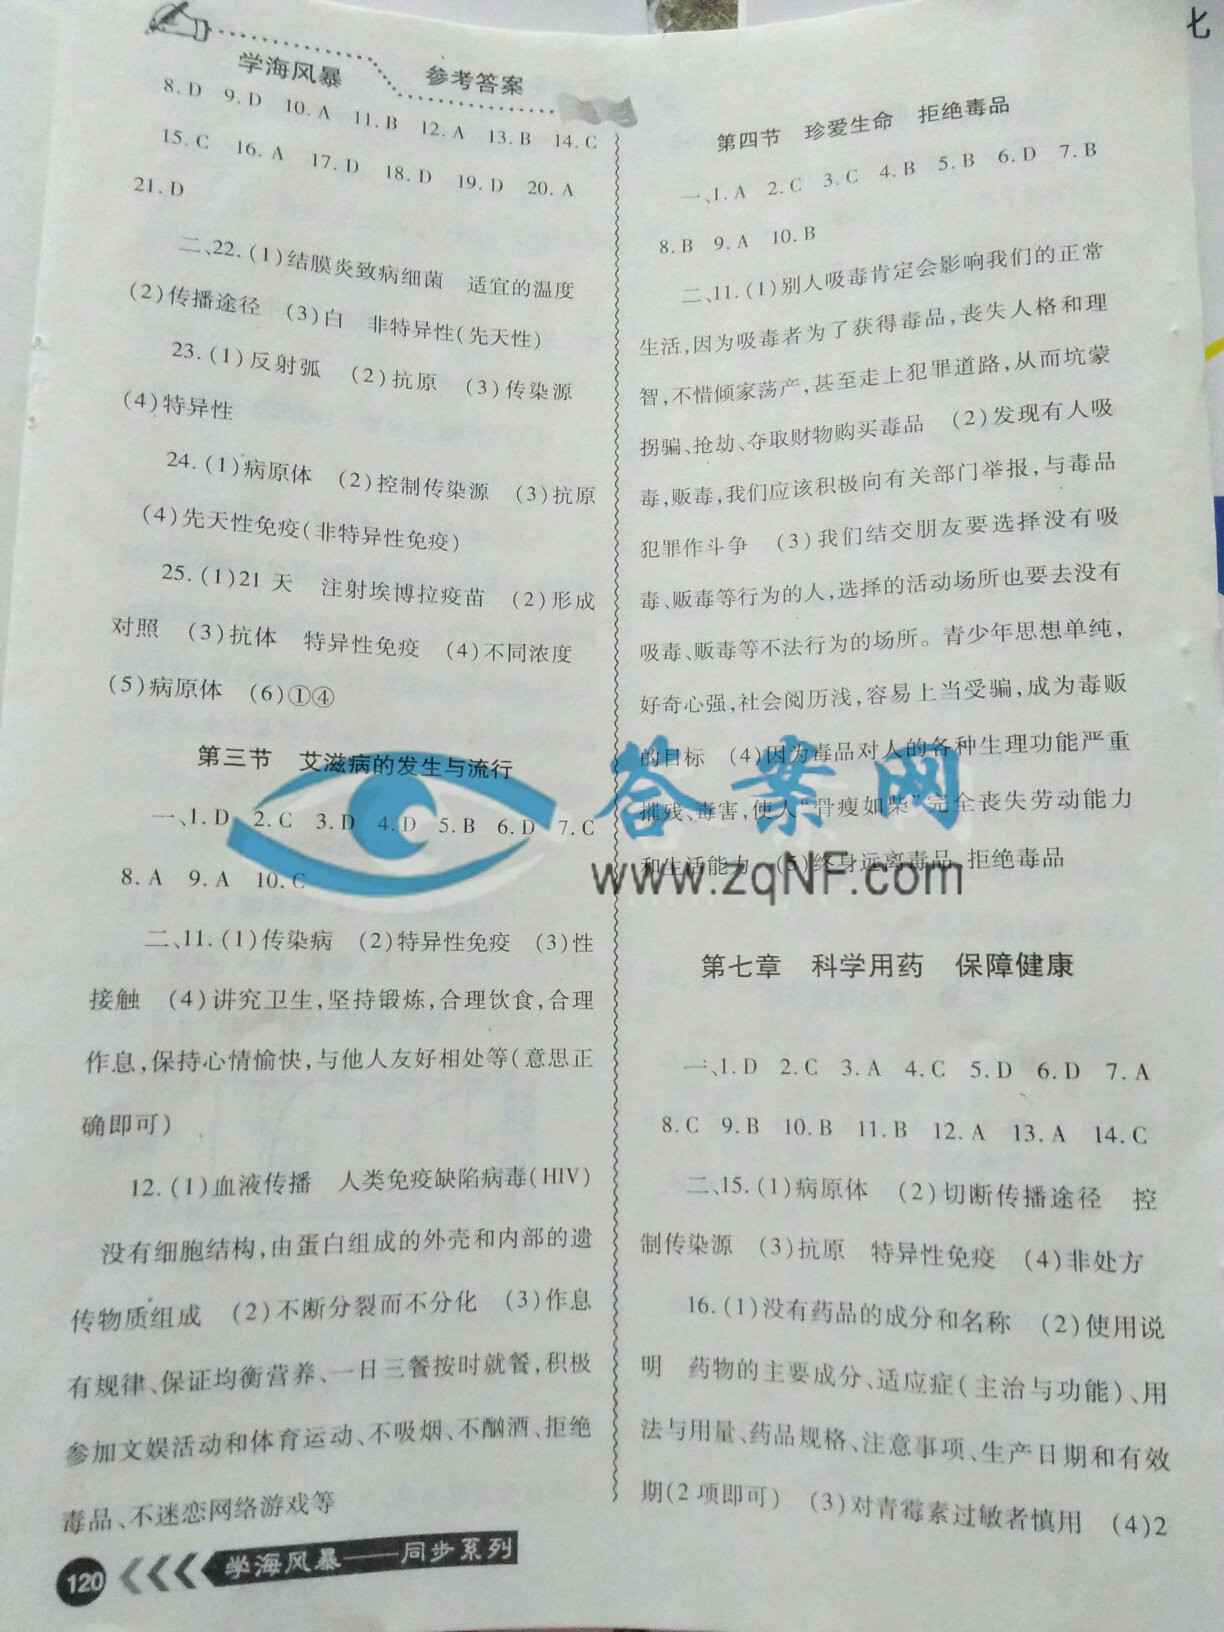 七
学海风暴 参考答案
8. D 9. D 10. A 11. B 12. A 13. B 14. C
15. C 16. A 17. D 18. D 19. D 20. A
21. D
二、22. (1)结膜炎致病细菌 适宜的温度
(2)传播途径 (3)白 非特异性(先天性)
23. (1)反射弧 (2)抗原 (3)传染源
(4)特异性
24. (1)病原体 (2)控制传染源 (3)抗原
(4)先天性免疫(非特异性免疫)
25. (1)21 天 注射埃博拉疫苗 (2)形成
对照 (3)抗体 特异性免疫 (4)不同浓度
(5)病原体 (6)①④
第三节 艾滋病的发生与流行
一、1. D 2. C 3. D 4. D 5. B 6. D 7. C
8. A 9. A 10. C
二、11. (1)传染病 (2)特异性免疫 (3)性
接触 (4)讲究卫生,坚持锻炼,合理饮食,合理
作息,保持心情愉快,与他人友好相处等(意思正
确即可)
12. (1)血液传播 人类免疫缺陷病毒(HIV)
没有细胞结构,由蛋白组成的外壳和内部的遗
传物质组成 (2)不断分裂而不分化 (3)作息
有规律、保证均衡营养、一日三餐按时就餐,积极
参加文娱活动和体育运动、不吸烟、不酗酒、拒绝
毒品、不迷恋网络游戏等
120 学海风暴——同步系列
第四节 珍爱生命 拒绝毒品
一、1. A 2. C 3. C 4. B 5. B 6. D 7. B
8. B 9. A 10. B
二、11. (1)别人吸毒肯定会影响我们的正常
生活,因为吸毒者为了获得毒品,丧失人格和理
智,不惜倾家荡产,甚至走上犯罪道路,从而坑蒙
拐骗、抢劫、夺取财物购买毒品 (2)发现有人吸
毒,贩毒,我们应该积极向有关部门举报,与毒品
犯罪作斗争 (3)我们结交朋友要选择没有吸
毒、贩毒等行为的人,选择的活动场所也要去没有
吸毒、贩毒等不法行为的场所。青少年思想单纯,
好奇心强,社会阅历浅,容易上当受骗,成为毒贩
的目标 (4)因为毒品对人的各种生理功能严重
摧残、毒害,使人“骨瘦如柴”完全丧失劳动能力
和生活能力 (5)终身远离毒品,拒绝毒品
答案网
www.zqNF.com
第七章 科学用药 保障健康
一、1. D 2. C 3. A 4. C 5. D 6. D 7. A
8. C 9. B 10. B 11. B 12. A 13. A 14. C
二、15. (1)病原体 (2)切断传播途径 控
制传染源 (3)抗原 特异性免疫 (4)非处方
16. (1)没有药品的成分和名称 (2)使用说
明 药物的主要成分、适应症(主治与功能)、用
法与用量、药品规格、注意事项、生产日期和有效
期(2 项即可) (3)对青霉素过敏者慎用 (4)2